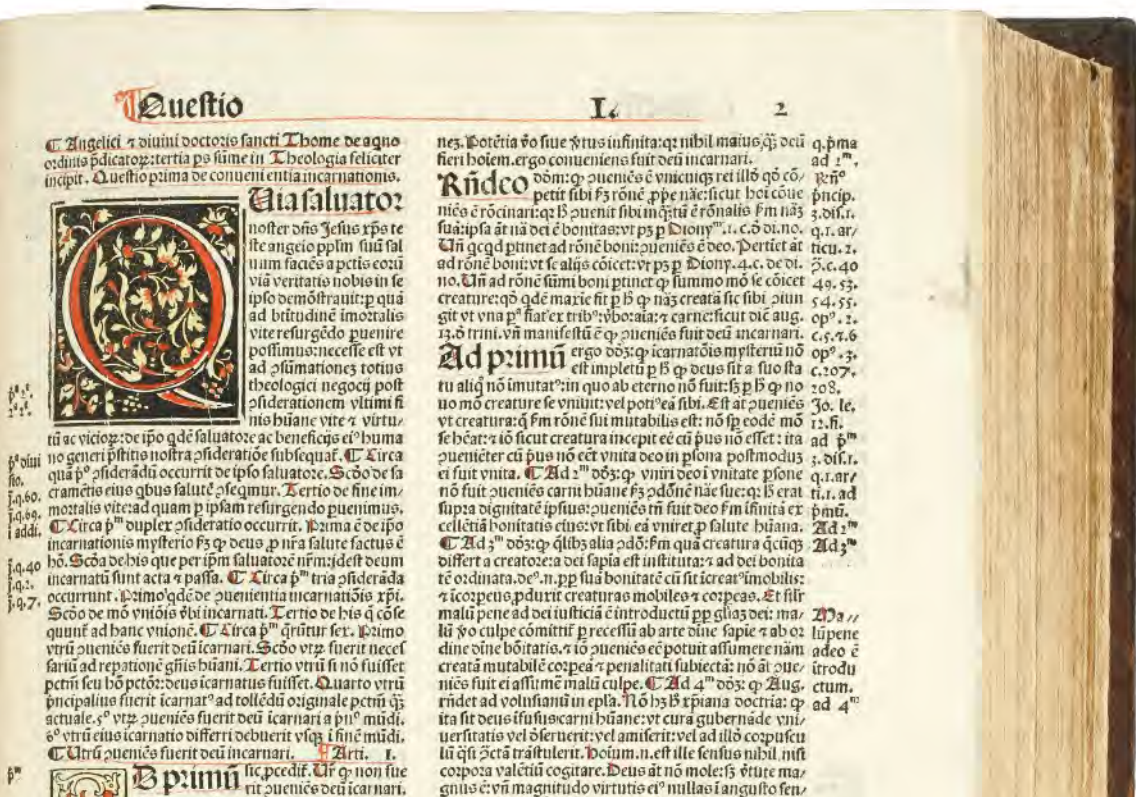 Questio I. 2
¶ Angelici ⁊ diuini doctoris sancti Thome de aqno
ordinis p̄dicatoꝝ: tertia ps sūme in Theologia feliciter
incipit. Questio prima de conueni entia incarnationis.
Quia saluator
noster dn̄s Jesus xp̄s te
ste angelo pplm̄ suū sal
uum faciēs a pctīs eorū
viā veritatis nobis in se
ipso demōstrauit: ꝑ quā
ad btītudinē īmortalis
vite resurgēdo ꝑuenire
possimus: necesse est vt
ad ꝯsūmationeꝫ totius
theologici negocij post
ꝯsiderationem vltimi fi
nis hūane vite ⁊ virtu⸗
tū ac vicioꝝ: de ip̄o qdē saluatore ac beneficijs eiꝰ huma
no generi p̄stitis nostra ꝯsideratiōe subsequat̄. ¶ Circa
quā pº ꝯsiderādū occurrit de ipso saluatore. Scd̄o de sa
cramētis eius qbus salutē ꝯseqmur. Tertio de fine im⸗
mortalis vite: ad quam ꝑ ipsam resurgendo ꝑuenimus.
¶ Circa pᵐ duplex ꝯsideratio occurrit. Prima ē de ip̄o
incarnationis mysterio ꝼꝫ ꝙ deus ꝓ nr̄a salute factus ē
hō. Scd̄a de his que per ip̄m saluatorē nr̄m: idest deum
incarnatū sunt acta ⁊ passa. ¶ Circa pᵐ tria ꝯsiderāda
occurrunt. Primo qdē de ꝯuenientia incarnatiōis xp̄i.
Scd̄o de mō vniōis v̄bi incarnati. Tertio de his q̄ cōse
quunt̄ ad hanc vnionē. ¶ Circa pᵐ q̄rūtur sex. Primo
vtrū ꝯueniēs fuerit deū icarnari. Scd̄o vtꝝ fuerit neces
sariū ad repationē gn̄is hūani. Tertio vtrū si nō fuisset
pctm̄ seu hō pctōr: deus icarnatus fuisset. Quarto vtrū
pncipalius fuerit icarnatꝰ ad tollēdū originale pctm̄ qꝫ
actuale. 5º vtꝝ ꝯueniēs fuerit deū icarnari a pnº mūdi.
6º vtrū eius icarnatio differri debuerit vsqꝫ ī finē mūdi.
¶ Utrū ꝯueniēs fuerit deū incarnari. Arti. 1.
D primū sic ꝓcedit̄. Ur̄ ꝙ non fue
rit ꝯueniēs deū icarnari.
pᵃ diui
sio.
j.q.60.
j.q.69.
i addi.
j.q.40
j.q.2.
j.q.7.
pᵐ
neꝫ. Potētia v̄o siue v̄tus infinita: qꝛ nihil maius qꝫ deū
fieri hoīem. ergo conueniens fuit deū incarnari.
Rn̄deo dōm: ꝙ ꝯueniēs ē vnicuiqꝫ rei illđ qđ cō⸗
petit sibi ꝼꝫ rōnē ꝓp̄e nāe: sicut hoī cōue
niēs ē rōcinari: qꝛ ꝯuenit sibi inqꝫtū ē rōnalis ẜm nāꝫ
suā: ipsa āt nā dei ē bonitas: vt pꝫ ꝑ Diony̅. 1. c. đ di. no.
Un̄ qcqd ꝑtinet ad rōnē boni: ꝯueniēs ē deo. Pertiet āt
ad rōnē boni: vt se alijs cōicet: vt pꝫ ꝑ Diony. 4. c. de di.
no. Un̄ ad rōnē sūmi boni ꝑtinet ꝙ summo mō se cōicet
creature: qđ qdē maxīe fit ꝑ ꝙ nāꝫ creatā sic sibi ꝯiun
git vt vna pª fiat ex tribꝰ: v̄bo: aīa: ⁊ carne: sicut dic̄ aug.
13. đ trini. vn̄ manifestū ē ꝙ ꝯueniēs fuit deū incarnari.
Ad primū ergo dōꝫ: ꝙ icarnatōis mysteriū nō
est impletū ꝑ ꝙ deus sit a suo sta
tu aliq̄ nō imutatꝰ: in quo ab eterno nō fuit: sꝫ ꝑ ꝙ no
uo mō creature se vniuit: vel potiꝰ eā sibi. Est āt ꝯueniēs
vt creatura: q̄ ẜm rōnē sui mutabilis est: nō sꝑ eodē mō
se hēat: ⁊ iō sicut creatura incepit eē cū pus nō esset: ita
ꝯueniēter cū pus nō eēt vnita deo in ꝑsona postmoduꝫ
ei fuit vnita. ¶ Ad 2ᵐ dōꝫ: ꝙ vniri deo ī vnitate ꝑsone
nō fuit ꝯueniēs carni hūane ꝼꝫ ꝯdōnē nāe sue: qꝛ erat
supra dignitatē ipsius: ꝯueniēs tn̄ fuit deo ẜm īfinitā ex
cellētiā bonitatis eius: vt sibi eā vniret ꝓ salute hūana.
¶ Ad 3ᵐ dōꝫ: ꝙ qlibꝫ alia ꝯdō: ẜm quā creatura qcūqꝫ
differt a creatore: a dei sapīa est instituta: ⁊ ad dei bonita
tē ordinata. deº. n. ꝓp suā bonitatē cū sit īcreatꝰ īmobilis:
⁊ īcorpeus ꝓdurit creaturas mobiles ⁊ corpeas. Et sil̄r
malū pene ad dei iusticiā ē introductū ꝓp glīaꝫ dei: ma⸗
lū v̄o culpe cōmittit̄ ꝑ recessū ab arte diīne sapīe ⁊ ab or
dine diīne bōitatis. ⁊ iō ꝯueniēs eē potuit assumere nām
creatā mutabilē corpeā ⁊ penalitati subiectā: nō āt ꝯue⸗
niēs fuit ei assumē malū culpe. ¶ Ad 4ᵐ dōꝫ: ꝙ Aug.
rn̄det ad volusianū in epl̄a. Nō hꝫ xp̄iana doctria: ꝙ
ita sit deus īfusus carni hūane: vt curā gubernāde vni⸗
uersitatis vel đseruerit: vel amiserit: vel ad illđ corpuscu
lū q̄si ꝯctā trāstulerit. hoīum. n. est ille sensus nihil nisi
corpora valētiū cogitare. Deus āt nō mole: sꝫ v̄tute ma⸗
gnus ē: vn̄ magnitudo virtutis eiꝰ nullas ī angusto sen⸗
q.pma
ad 1ᵐ.
Rn̄º
pncip.
3.dis.1.
q.1.ar⸗
ticu.2.
ꝯ.c.40
49.53.
54.55.
opº.2.
c.5.⁊.6
opº.3.
c.207.
208.
Jo. le.
12.fi.
ad pᵐ
3.dis.1.
q.1.ar⸗
ti.1.ad
pmū.
Ad 2ᵐ
Ad 3ᵐ
Ma⸗
lū pene
a deo ē
itrodu
ctum.
ad 4ᵐ